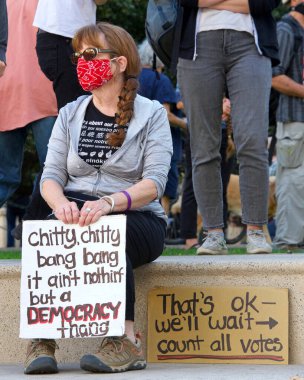 chitty, chitty
bang bang
it ain't nothin'
but a
DEMOCRACY
thang
That's ok—
we'll wait→
count all votes